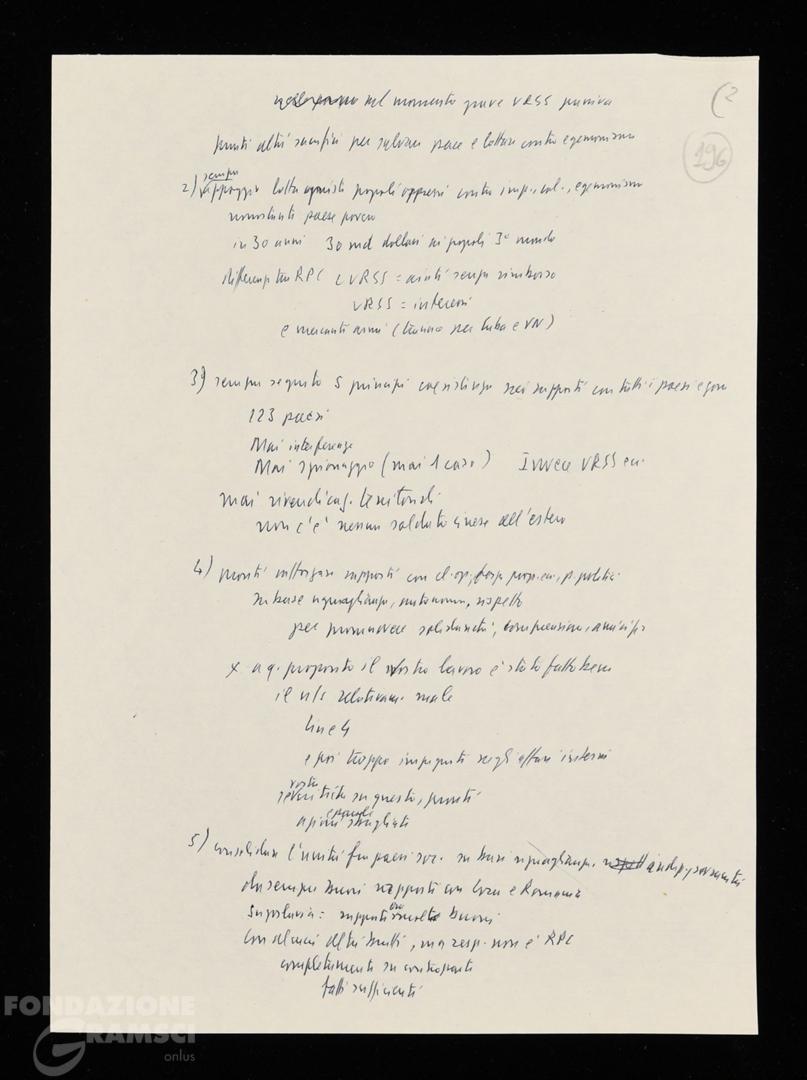 nel momento grave URSS puniva
(2
196
pronti altri sacrifici per salvare pace e lottare contro egemonismo
sempre
2) appoggio lotta popoli oppressi contro imp., col., egemonismo
nonostante paese povero
in 30 anni 30 md dollari ai popoli 3° mondo
differenza tra RPC e URSS = aiuti senza rimborso
URSS = interessi
e mercanti armi (tranne per Cuba e VN)
3) sempre seguito 5 principi coesistenza nei rapporti con tutti i paesi e gov
123 paesi
Mai interferenze
Mai spionaggio (mai 1 caso) Invece URSS
mai rivendicaz. territoriali
non c'è nessun soldato cinese all'estero
4) pronti rafforzare rapporti con cl. op., forze progr., p. politici
su base uguaglianza, autonomia, rispetto
per promuovere solidarietà, comprensione, amicizia
x a q. proposito il vostro lavoro è stato fatto bene
il n/s relativam. male
linea
e poi troppo impegnati negli affari interni
vostre
critiche su questo, pronti
azioni sbagliate
5) consolidare l'unità fra paesi soc. su basi uguaglianza, indip., sovranità
sempre buoni rapporti con Corea e Romania
Jugoslavia = rapporti ora molto buoni
con alcuni altri brutti, ma resp. non è RPC
completamente su controparte
fatti sufficienti
FONDAZIONE
GRAMSCI
onlus